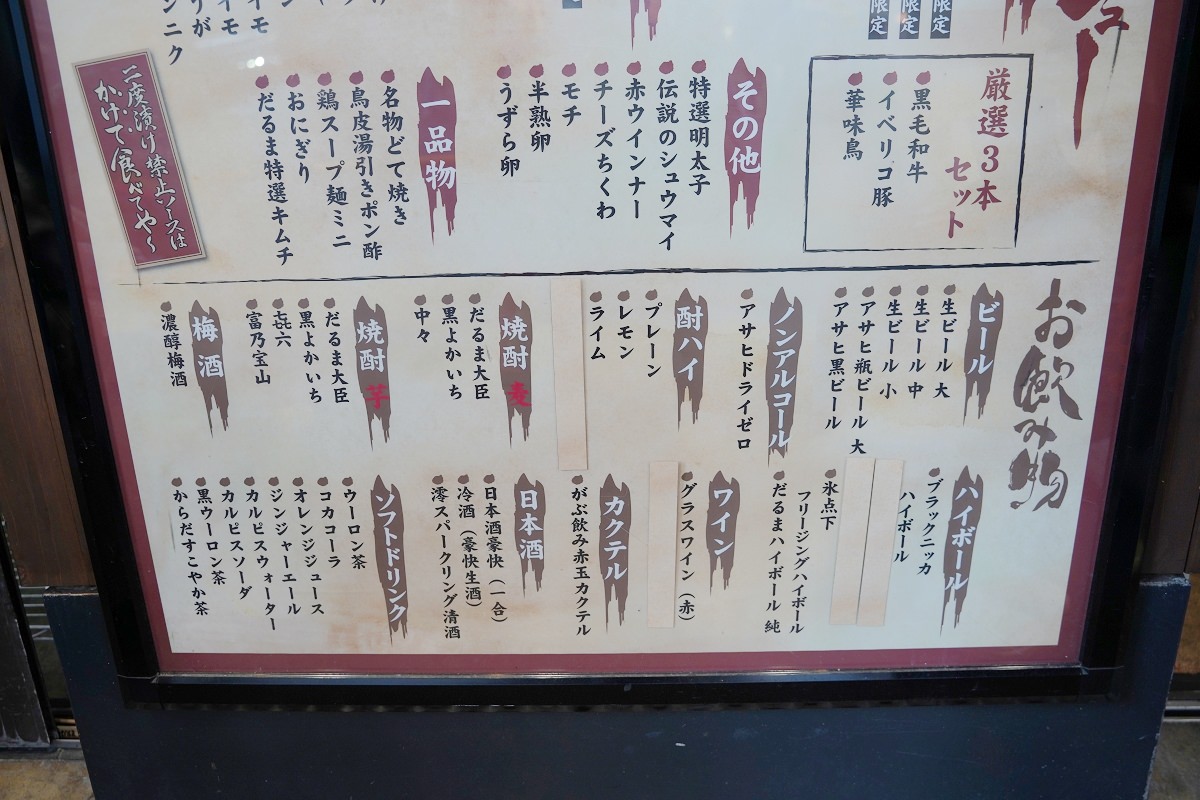 限定
限定
限定
イモ
イモ
りが
ンニク
厳選3本
セット
黒毛和牛
イベリコ豚
華味鳥
その他
特選明太子
伝説のシュウマイ
赤ウインナー
チーズちくわ
モチ
半熟卵
うずら卵
一品物
名物どて焼き
鳥皮湯引きポン酢
鶏スープ麺ミニ
おにぎり
だるま特選キムチ
二度漬け禁止ソースは
かけて食べてや〜
お飲み物
ビール
生ビール 大
生ビール 中
生ビール 小
アサヒ瓶ビール 大
アサヒ黒ビール
ノンアルコール
アサヒドライゼロ
酎ハイ
プレーン
レモン
ライム
焼酎 麦
だるま大臣
黒よかいち
中々
焼酎 芋
だるま大臣
黒よかいち
㐂六
富乃宝山
梅酒
濃醇梅酒
ハイボール
ブラックニッカ
ハイボール
氷点下
フリージングハイボール
だるまハイボール 純
ワイン
グラスワイン（赤）
カクテル
がぶ飲み赤玉カクテル
日本酒
日本酒豪快（一合）
冷酒（豪快生酒）
澪スパークリング清酒
ソフトドリンク
ウーロン茶
コカコーラ
オレンジジュース
ジンジャーエール
カルピスウォーター
カルピスソーダ
黒ウーロン茶
からだすこやか茶